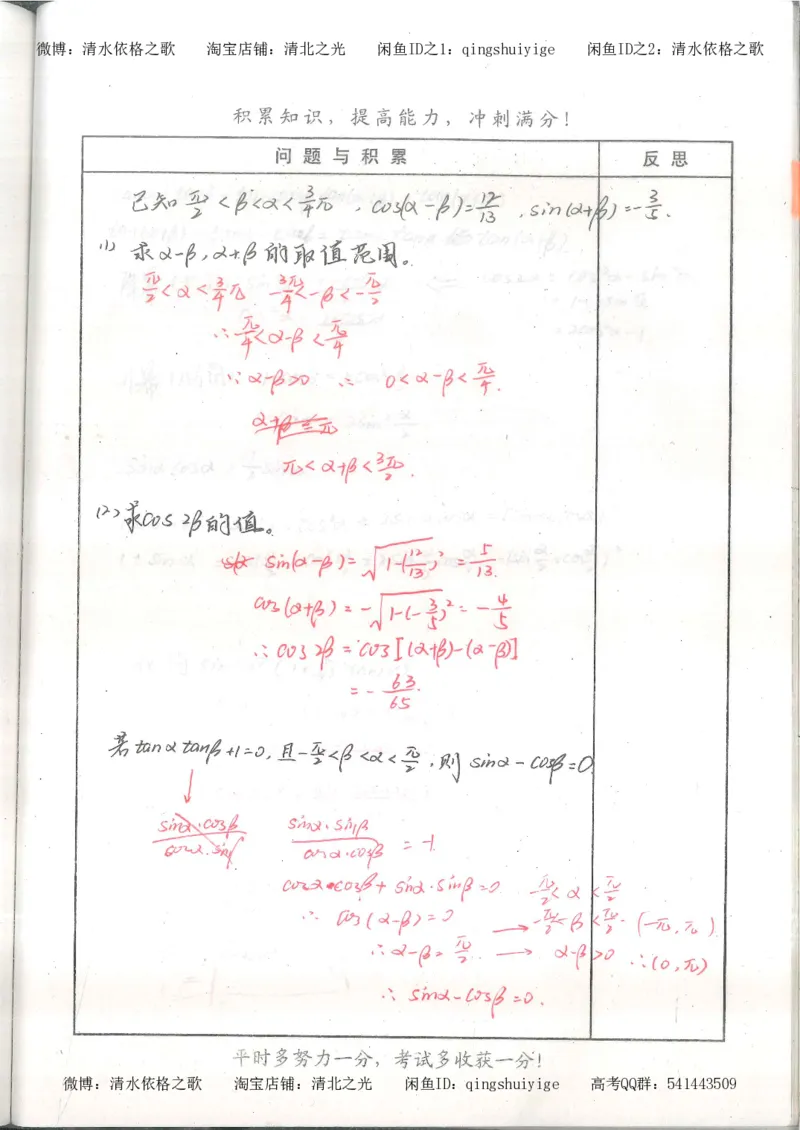 微博：清水依格之歌 淘宝店铺：清北之光 闲鱼ID之1：qingshuiyige 闲鱼ID之2：清水依格之歌
积累知识，提高能力，冲刺满分！
问题与积累 反思
已知 π/2<β<α<3/4π，cos(α-β)=12/13，sin(α+β)=-3/5.
(1) 求α-β，α+β的取值范围。
π/2<α<3/4π -3π/4<-β<-π/2
∴-π/4<α-β<π/4
∵α-β>0 ∴ 0<α-β<π/4.
π<α+β<3π/2.
(2)求cos2β的值。
sin(α-β)=√(1-(12/13)²)=5/13.
cos(α+β)=-√(1-(-3/5)²)=-4/5
∴cos2β=cos[(α+β)-(α-β)]
=-63/65.
若tanαtanβ+1=0，且-π/2<β<α<π/2，则 sinα-cosβ=0.
sinα·cosβ/cosα·sinβ sinα·sinβ/cosα·cosβ=-1
cosα·cosβ+sinα·sinβ=0 -π/2<α<π/2
∴ cos(α-β)=0 → -π/2<β<π/2. (-π,π)
∴α-β=π/2. → α-β>0 ∴(0,π)
∴ sinα-cosβ=0.
平时多努力一分，考试多收获一分！
微博：清水依格之歌 淘宝店铺：清北之光 闲鱼ID：qingshuiyige 高考QQ群：541443509